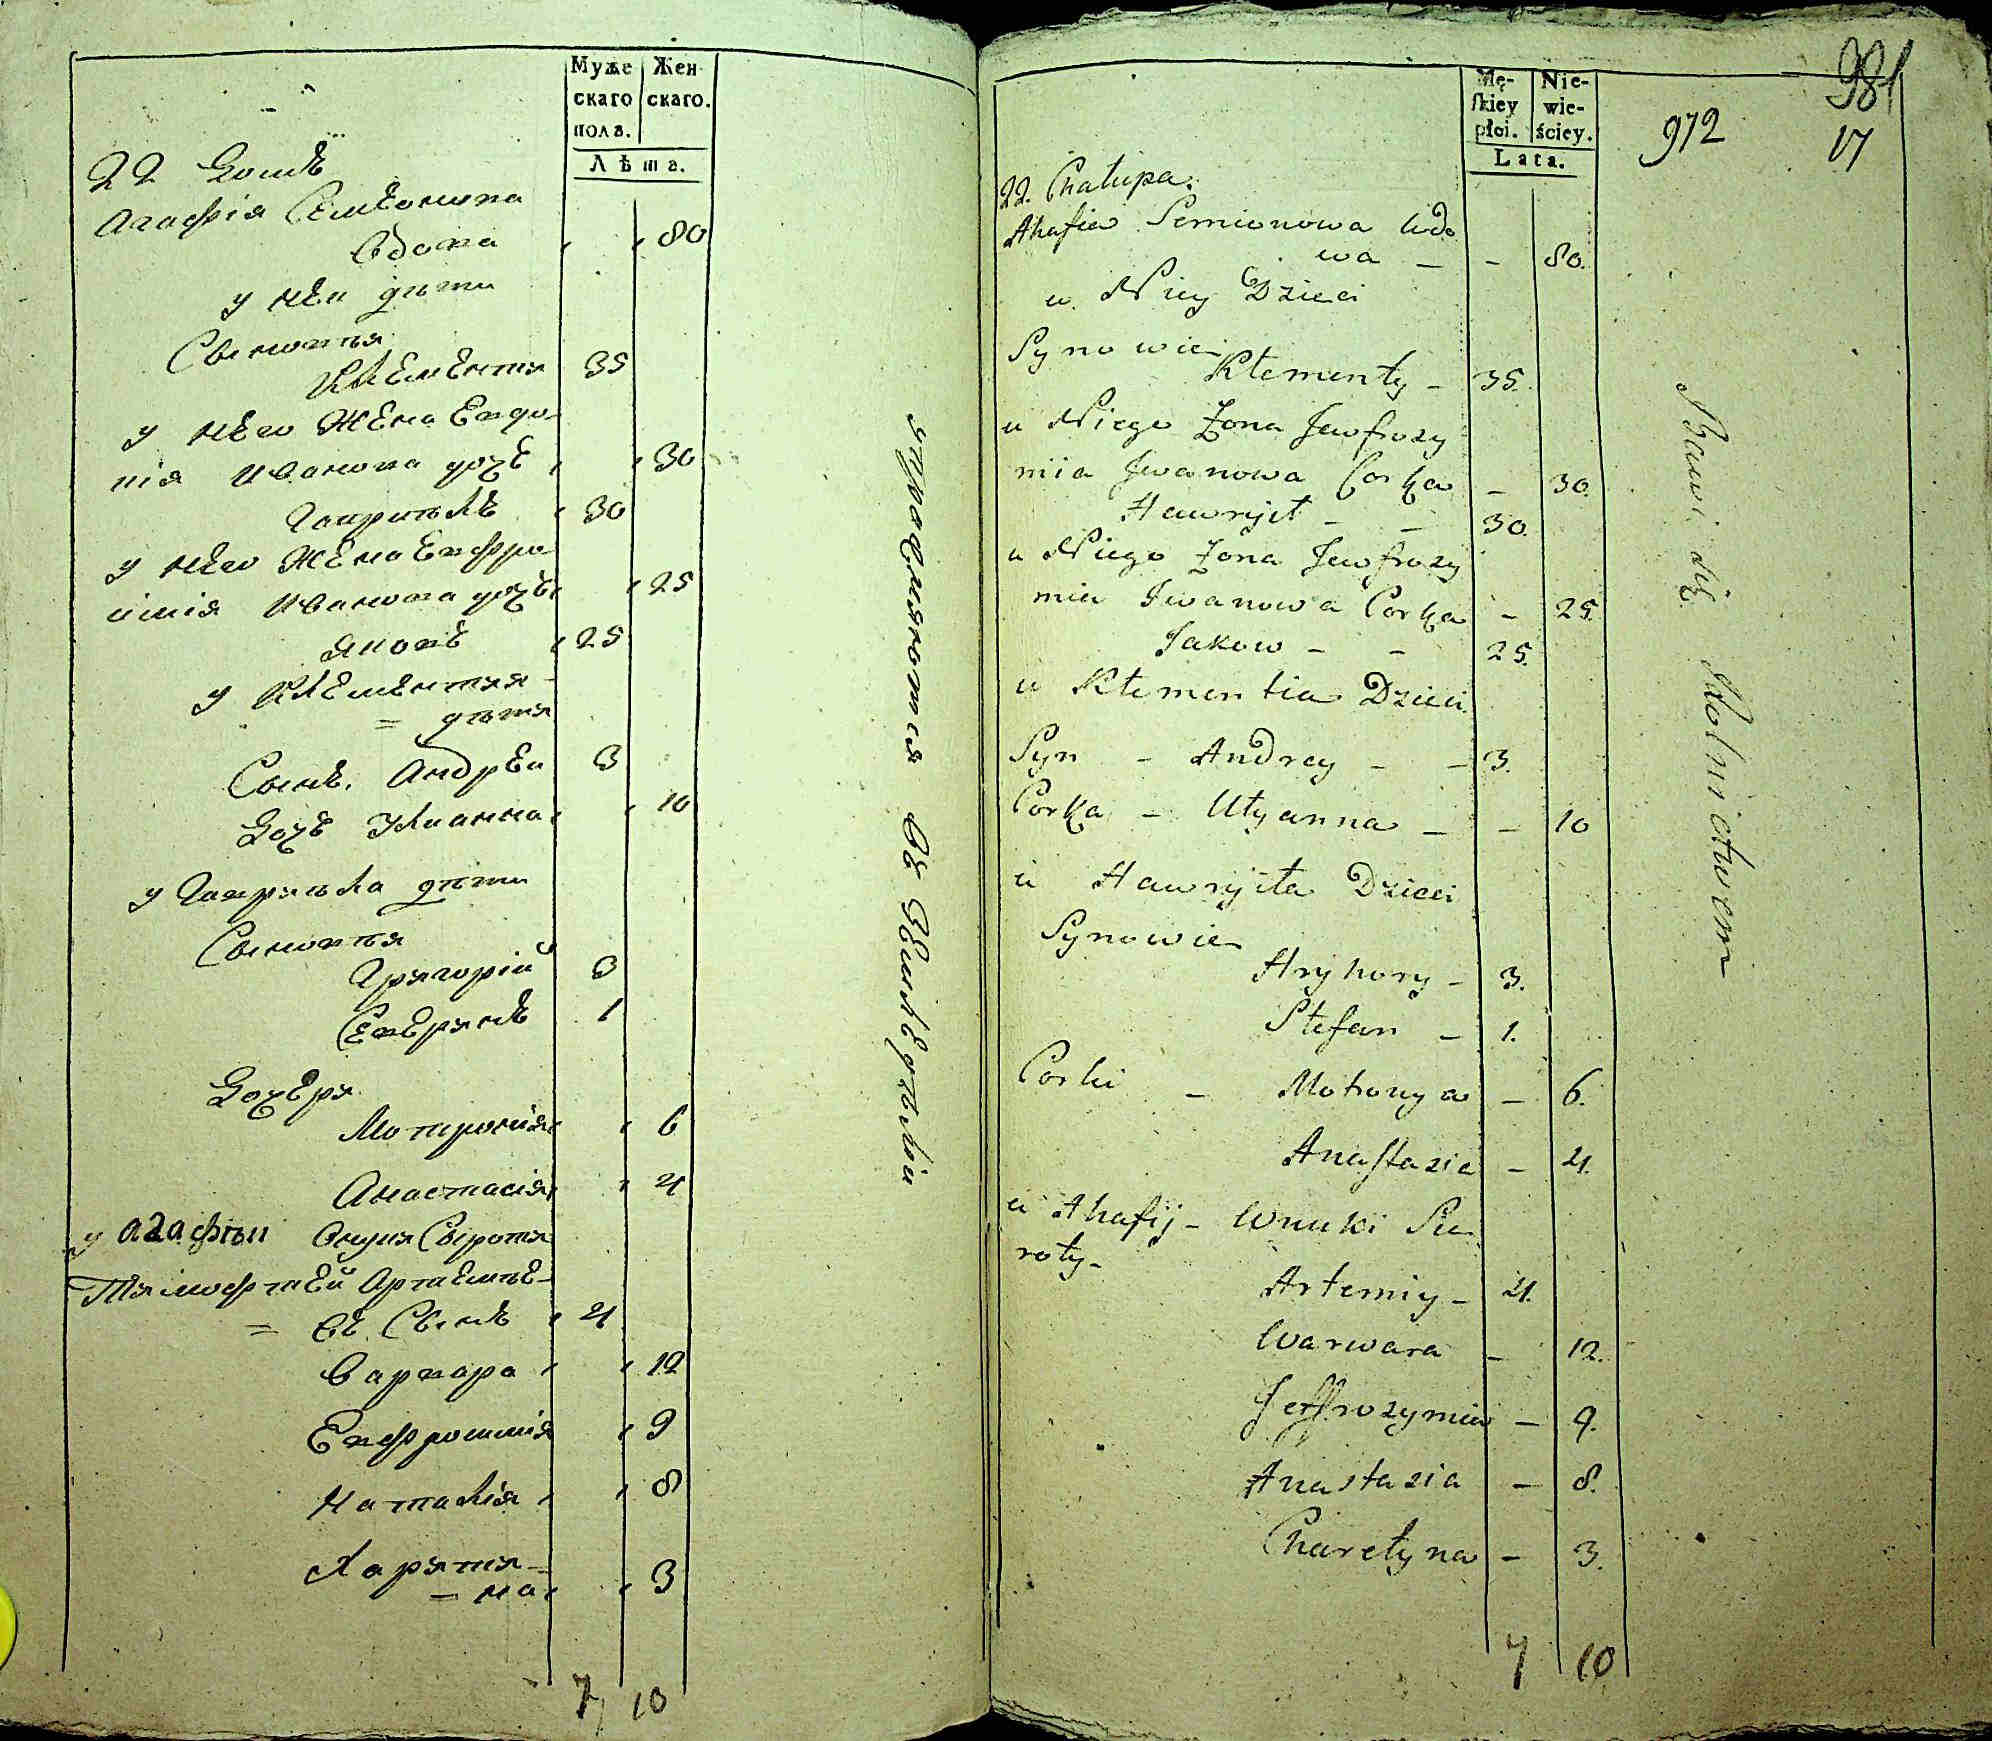 Муже
скаго
пола.
Жен
скаго.
Лѣта.
22 Домъ
Агафія Семіонова
вдова 80
у неи дѣти
Сыновья
Клементи 35
у него жена Евдо-
кія Иванова дочь 30
Гаврилъ 30
у него жена Евфро-
зинія Иванова дочь 25
Яковъ 25
у Клементия
= дѣти
Сынъ. Андреи 3
Дочь Улианна 10
у Гаврила дѣти
Сыновья
Григорій 3
Северинъ 1
Дочери
Мотронія 6
Анастасія 4
у агафіи Внуки Сироти
Тимофтей Артемье-
= въ Сынъ 4
Варвара 12
Евфросинія 9
Наталія 8
Харити-
= на 3
7 10
упражняются въ Земледѣліи
Mę-
skiey
płci.
Nie-
wie-
ściey.
Lata.
981
972
17
22. Chałupa.
Ahafia Semionowa wdo
wa – – 80.
u Niey Dzieci
Synowie
Klementy – 35.
u Niego Żona Jewfrozy
nia Jwanowa Corka – 30.
Hawryił – – 30.
u Niego Żona Jewfrozy
nia Jwanowa Corka – 25.
Jakow – – 25.
u Klementia Dzieci
Syn – Andrey – – 3.
Corka – Ulyanna – – 10
u Hawryiła Dzieci
Synowie
Hryhory – 3.
Stefan – 1.
Corki – Motrony a – 6.
Anastazia – 4.
u Ahafij – Wnuki Sie
roty –
Artemiy – 4.
Warwara – 12.
Jeffrozynia – 9.
Anastazia – 8.
Charetyna – 3.
7 10
Bawi się Rolnictwem